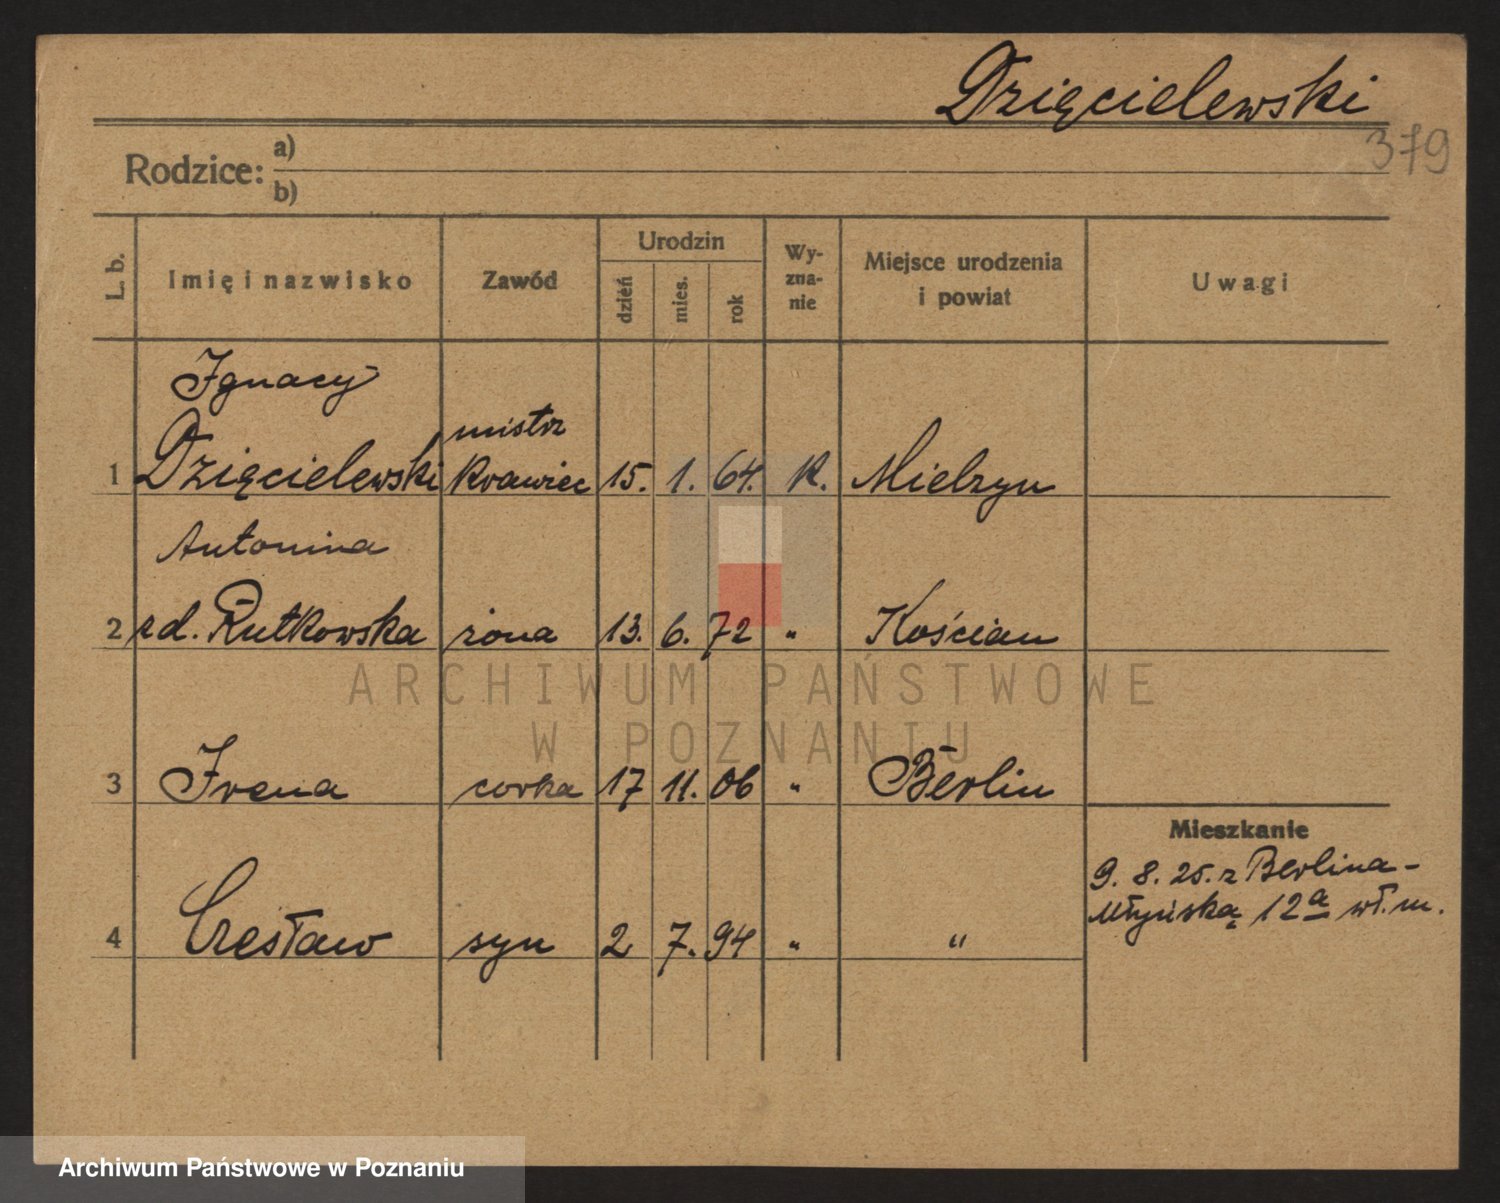 Dzięcielewski
379
Rodzice: a)
b)
L. b.
Imię i nazwisko
Zawód
Urodzin
dzień
mies.
rok
Wy-
zna-
nie
Miejsce urodzenia
i powiat
Uwagi
Ignacy
mistrz
1 Dzięcielewski krawiec 15. 1. 64. K. Mielzyn
Antonina
2 zd. Rutkowska żona 13. 6. 72 " Kościan
3 Irena corka 17 11. 06 " Berlin
Mieszkanie
9. 8. 25. z Berlina -
Młyńska 12a wł. m.
4 Czesław syn 2 7. 94 " "
ARCHIWUM PAŃSTWOWE
W POZNANIU
Archiwum Państwowe w Poznaniu